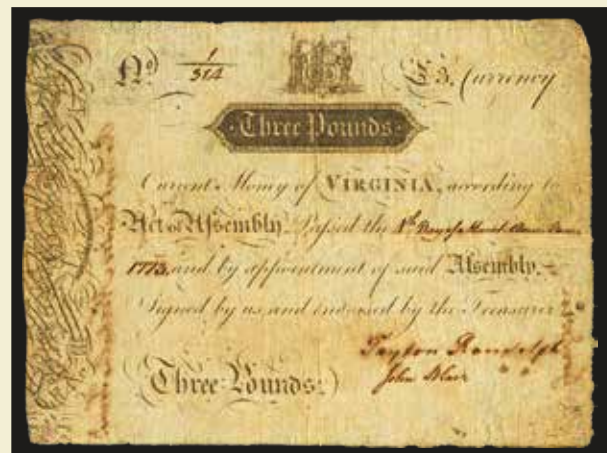 No 1/314 £3. Currency
Three Pounds
Current Money of VIRGINIA, according to
Act of Assembly Passed the
1773, and by appointment of said Assembly.
Signed by us, and endorsed by the Treasurer
Peyton Randolph
Three Pounds. John Blair